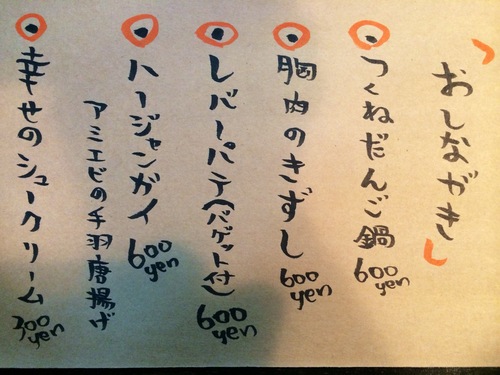 「おしながき」
つくねだんご鍋 600 yen
胸肉のきずし 600 yen
レバーパテ(バゲット付) 600 yen
ハージャンガイ 600 yen
アミエビの手羽唐揚げ
幸せのシュークリーム 300 yen